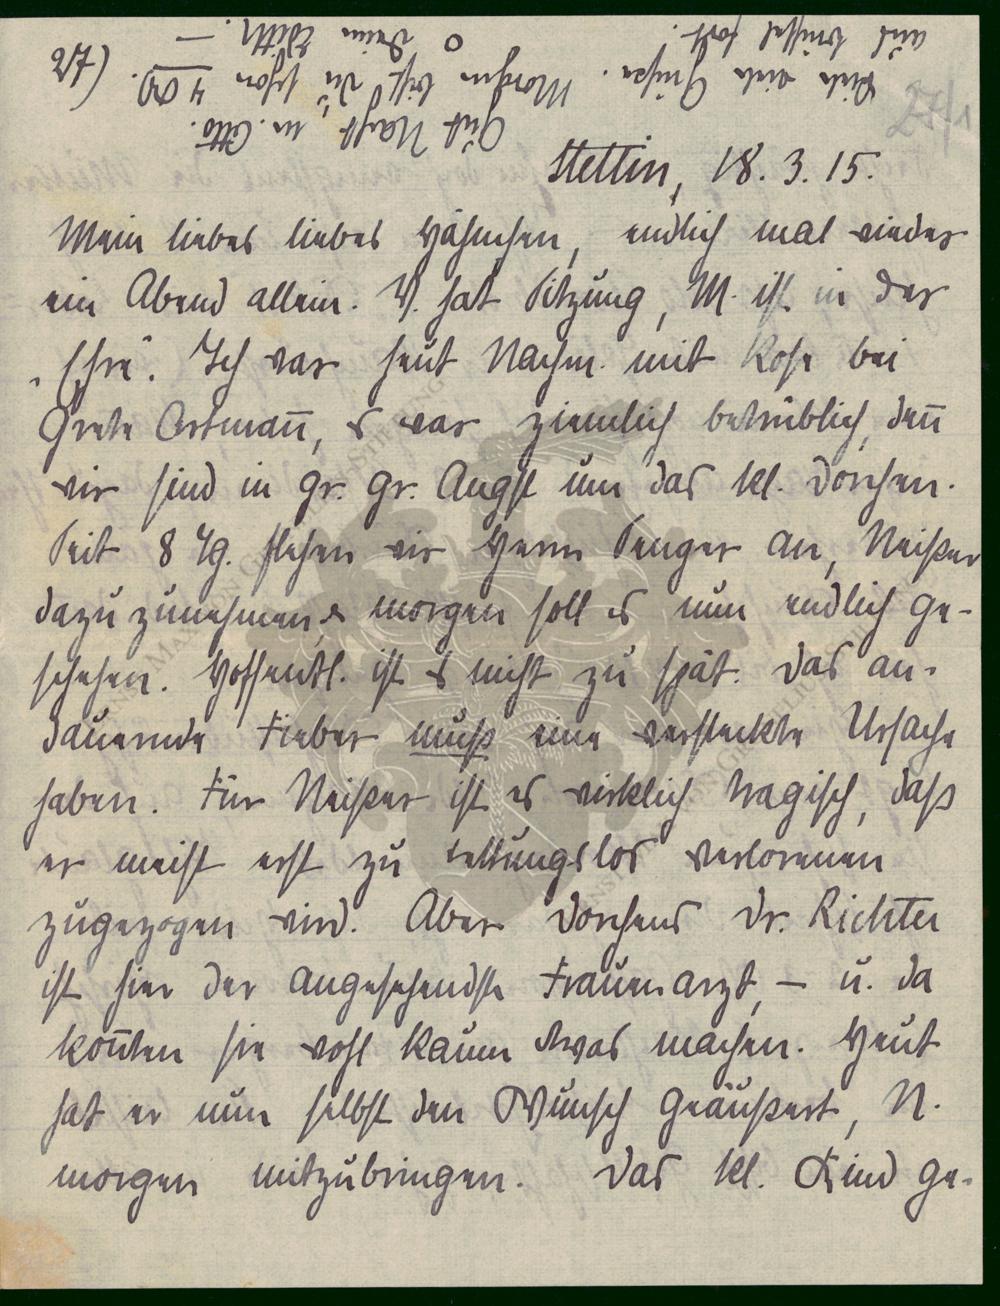 Stettin, 18. 3. 15.
Mein liebes liebes Hähnchen, endlich mal wieder
ein Abend allein. V. hat Sitzung, M. ist in der
Ich war heut Nachm. mit Rose bei
Grete Ortmañ, es war ziemlich betrüblich, deñ
wir sind in gr. gr. Angst um das kl. Dorchen.
Seit 8 Tg. flehen wir Herrn Senger an, Neißer
dazuzunehmen, & morgen soll es nun endlich ge-
schehen. Hoffentl. ist es nicht zu spät. Das an-
dauernde Fieber muß eine versteckte Ursache
haben. Für Neißer ist es wirklich tragisch, daß
er meist erst zu rettungslos verlorenen
zugezogen wird. Aber Dorchens Dr. Richter
ist hier der angesehendste Frauenarzt, — u. da
koñten sie wohl kaum etwas machen. Heut
hat er nun selbst den Wunsch geäußert, N.
morgen mitzubringen. Das kl. Kind ge-
Gut Nacht, m. Otto.
Viele viele Grüße. Morgen bist Du schon 4 (
und
Deine Edith. —